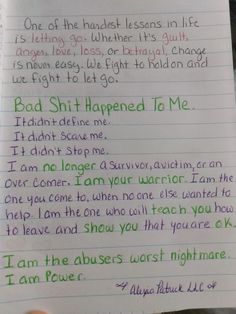 One of the hardest lessons in life
is letting go. Whether it's guilt,
anger, love, loss, or betrayal, Change
is never easy. We fight to hold on and
we fight to let go.
Bad Shit Happened To Me.
It didn't define me.
It didn't scare me.
It didn't stop me.
I am no longer a survivor, a victim, or an
over comer. I am your warrior. I am the
one you come to, when no one else wanted to
help. I am the one who will teach you how
to leave and show you that you are OK.
I am the abusers worst nightmare.
I am Power.
Patrick LLC